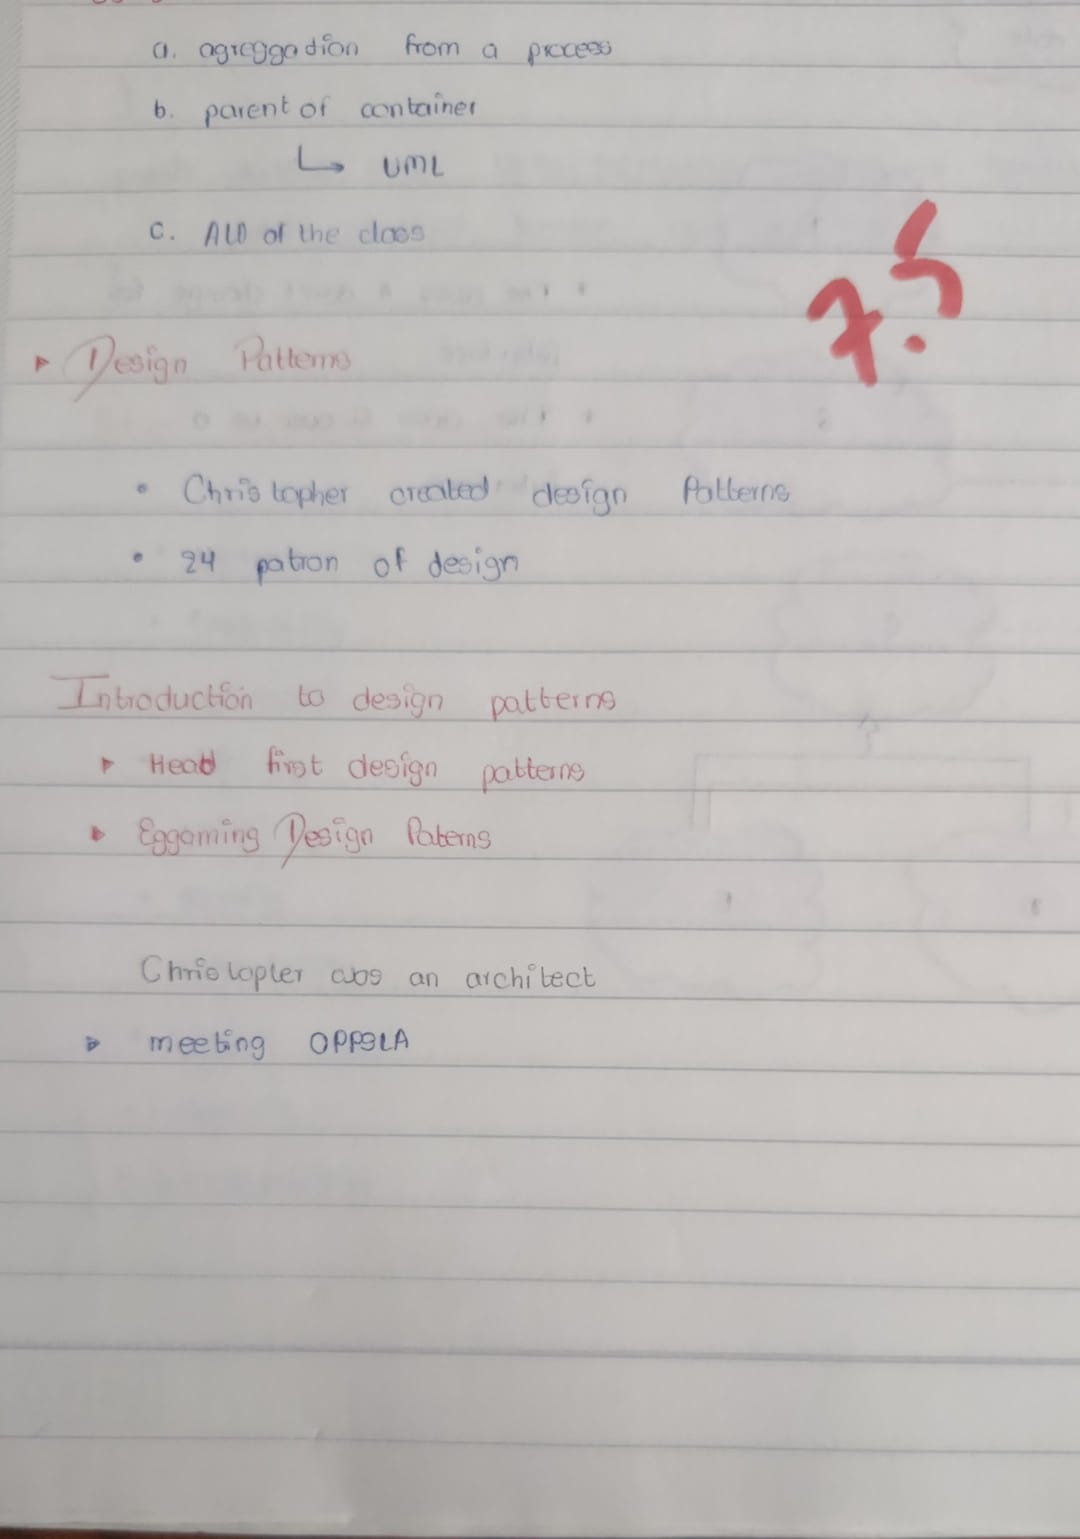 a. agreggadion from a process
b. parent of container
↳ UML
c. ALD of the class
7.5
▸ Design Patterns
• Christopher created design Patterns
• 24 patron of design
Introduction to design patterns
▸ Head first design patterns
▸ Eggaming Design Paterns
Christopler was an architect
▸ meeting OPPSLA